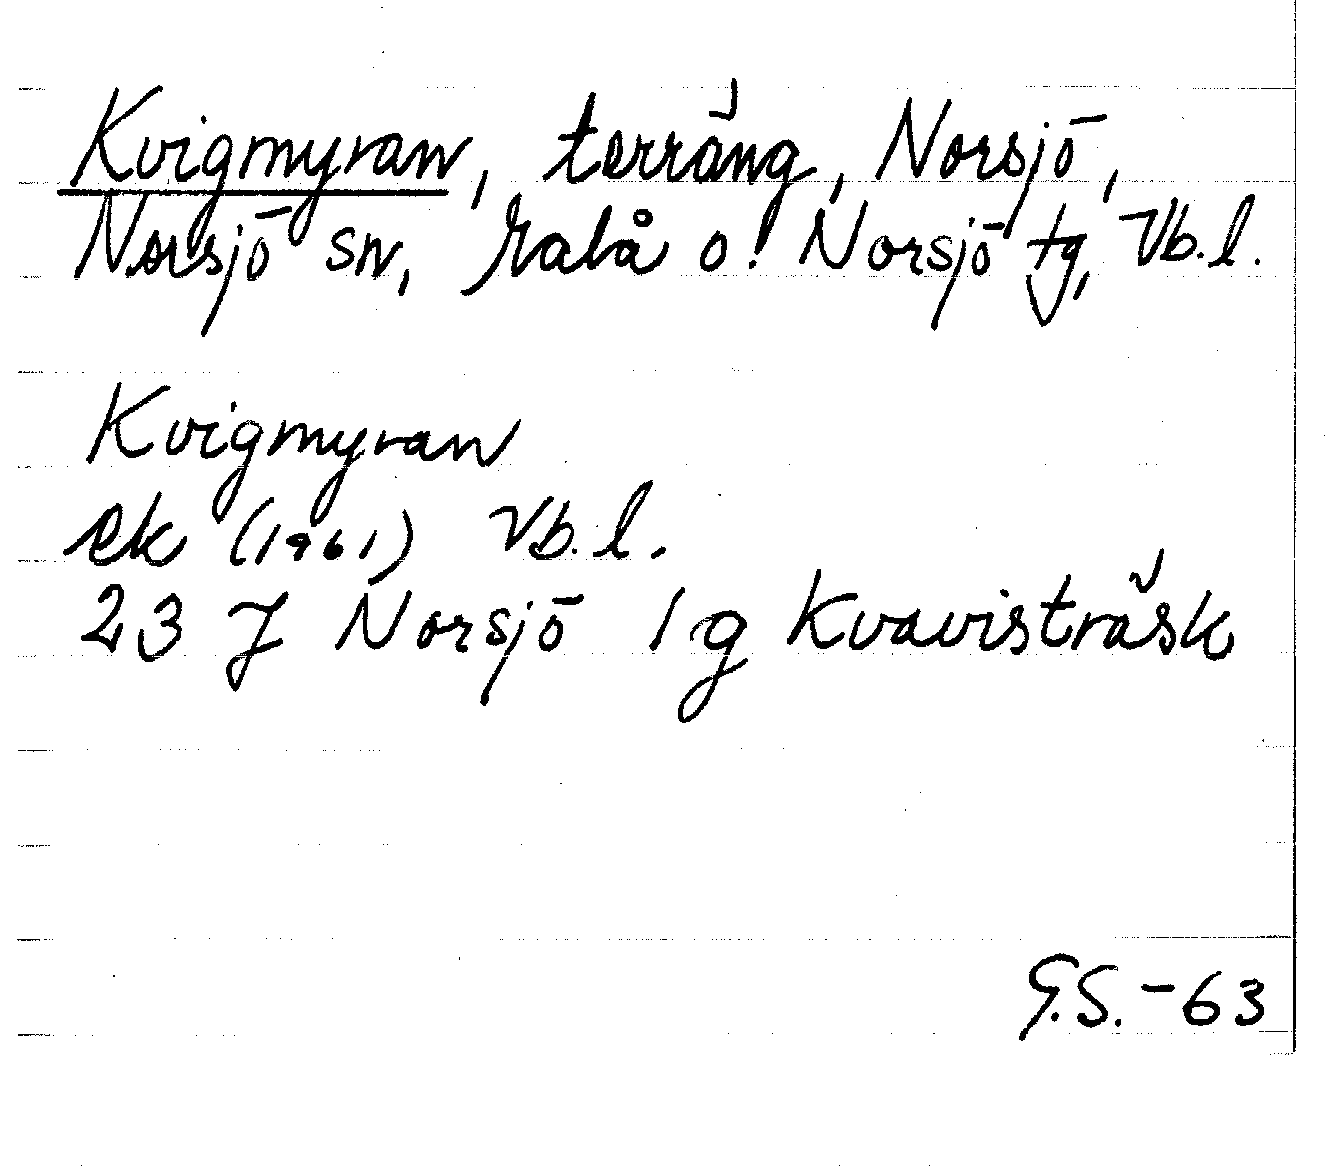 Kvigmyran, terräng, Norsjö,
Norsjö sn, Malå o. Norsjö tg, Vb.l.
Kvigmyran
ek (1961) Vb.l.
23 J Norsjö 1 g Kvavisträsk
G.S.-63